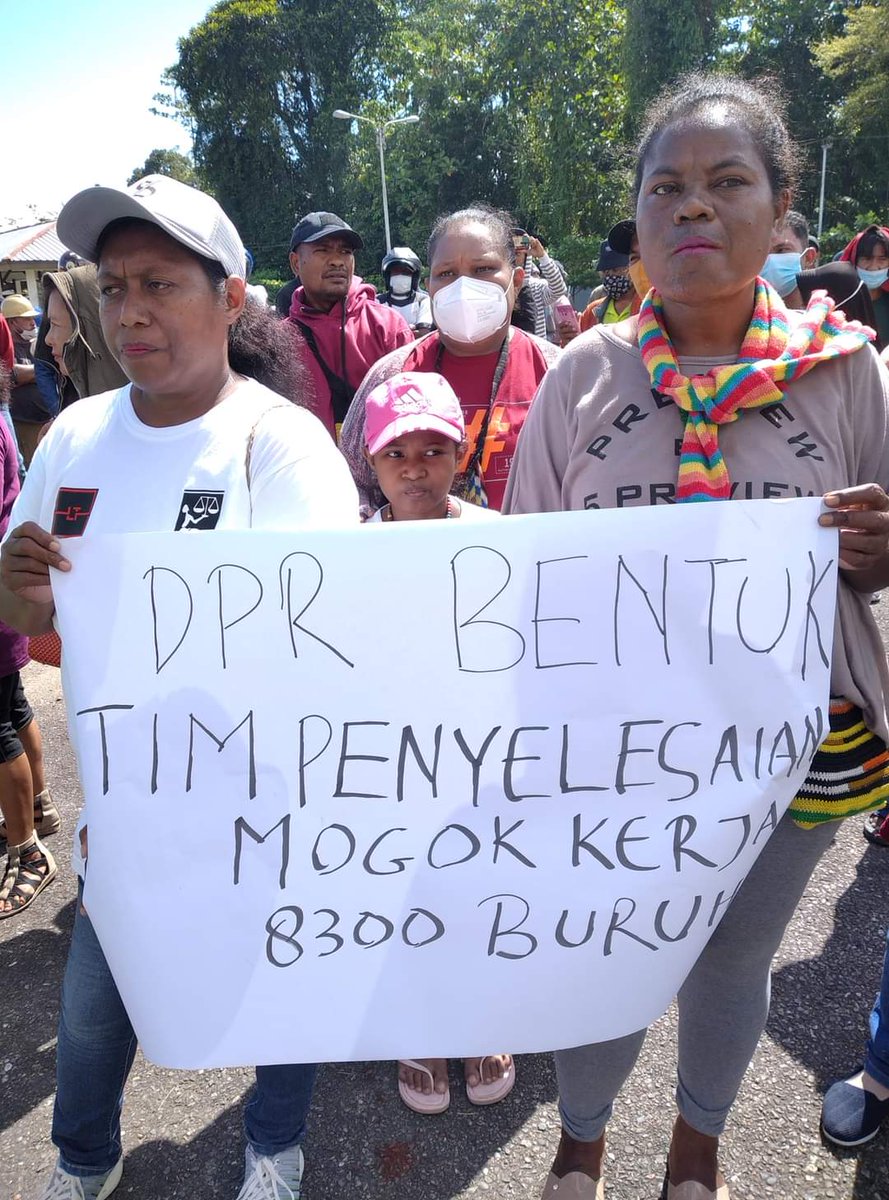 DPR BENTUK
TIM PENYELESAIAN
MOGOK KERJA
8300 BURUH
PREVIEW
5 PREVIEW
#